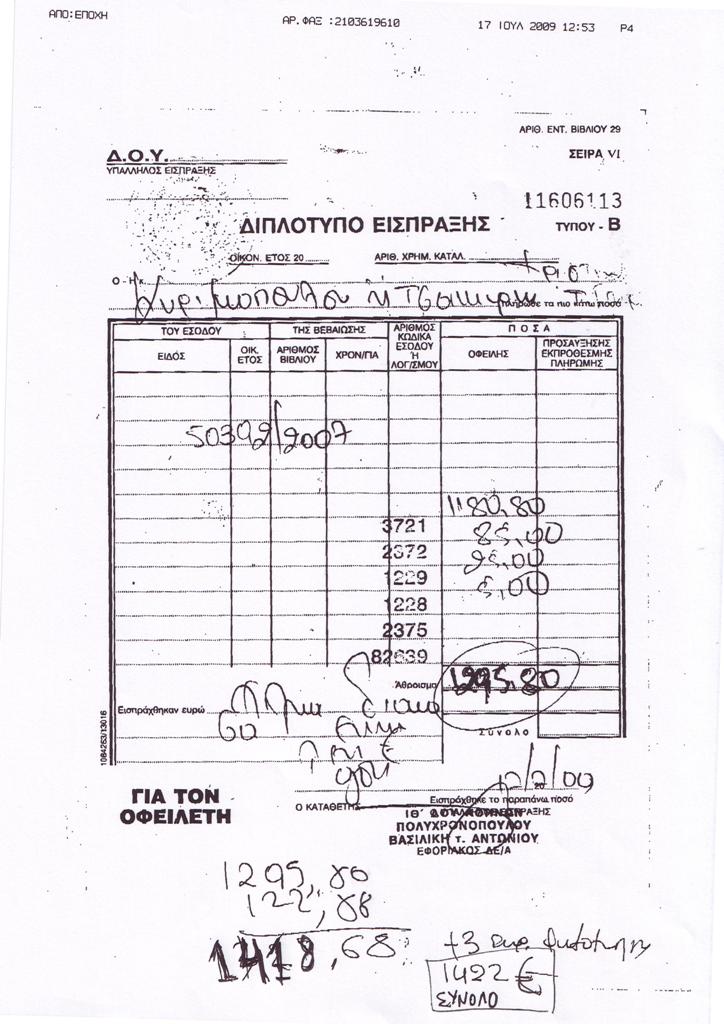 ΑΠΟ:ΕΠΟΧΗ ΑΡ.ΦΑΞ :2103619610 17 ΙΟΥΛ 2009 12:53 P4
ΑΡΙΘ. ΕΝΤ. ΒΙΒΛΙΟΥ 29
Δ.Ο.Υ. ΣΕΙΡΑ VI
ΥΠΑΛΛΗΛΟΣ ΕΙΣΠΡΑΞΗΣ
11606113
ΔΙΠΛΟΤΥΠΟ ΕΙΣΠΡΑΞΗΣ ΤΥΠΟΥ - Β
ΟΙΚΟΝ. ΕΤΟΣ 20 ΑΡΙΘ. ΧΡΗΜ. ΚΑΤΑΛ.
πλήρωσε τα πιο κάτω ποσά
ΤΟΥ ΕΣΟΔΟΥ ΤΗΣ ΒΕΒΑΙΩΣΗΣ ΑΡΙΘΜΟΣ ΚΩΔΙΚΑ ΕΣΟΔΟΥ Ή ΛΟΓ/ΣΜΟΥ ΠΟΣΑ
ΕΙΔΟΣ ΟΙΚ. ΕΤΟΣ ΑΡΙΘΜΟΣ ΒΙΒΛΙΟΥ ΧΡΟΝ/ΓΙΑ ΟΦΕΙΛΗΣ ΠΡΟΣΑΥΞΗΣΗΣ ΕΚΠΡΟΘΕΣΜΗΣ ΠΛΗΡΩΜΗΣ
50392/2007
1180,80
3721 85,00
2372 25,00
1229 5,00
1228
2375
82639
Άθροισμα 1295,80
Εισπράχθηκαν ευρώ
Σύνολο
1084263/13016
12/2/09
ΓΙΑ ΤΟΝ
ΟΦΕΙΛΕΤΗ
Ο ΚΑΤΑΘΕΤΗΣ
Εισπράχθηκε το παραπάνω ποσό
ΙΘ' ΔΟΥ ΑΘΗΝΩΝ
ΠΟΛΥΧΡΟΝΟΠΟΥΛΟΥ
ΒΑΣΙΛΙΚΗ τ. ΑΝΤΩΝΙΟΥ
ΕΦΟΡΙΑΚΟΣ ΔΕ/Α
1295,80
122,88
1418,68
+3 ευρ.
1422 €
ΣΥΝΟΛΟ